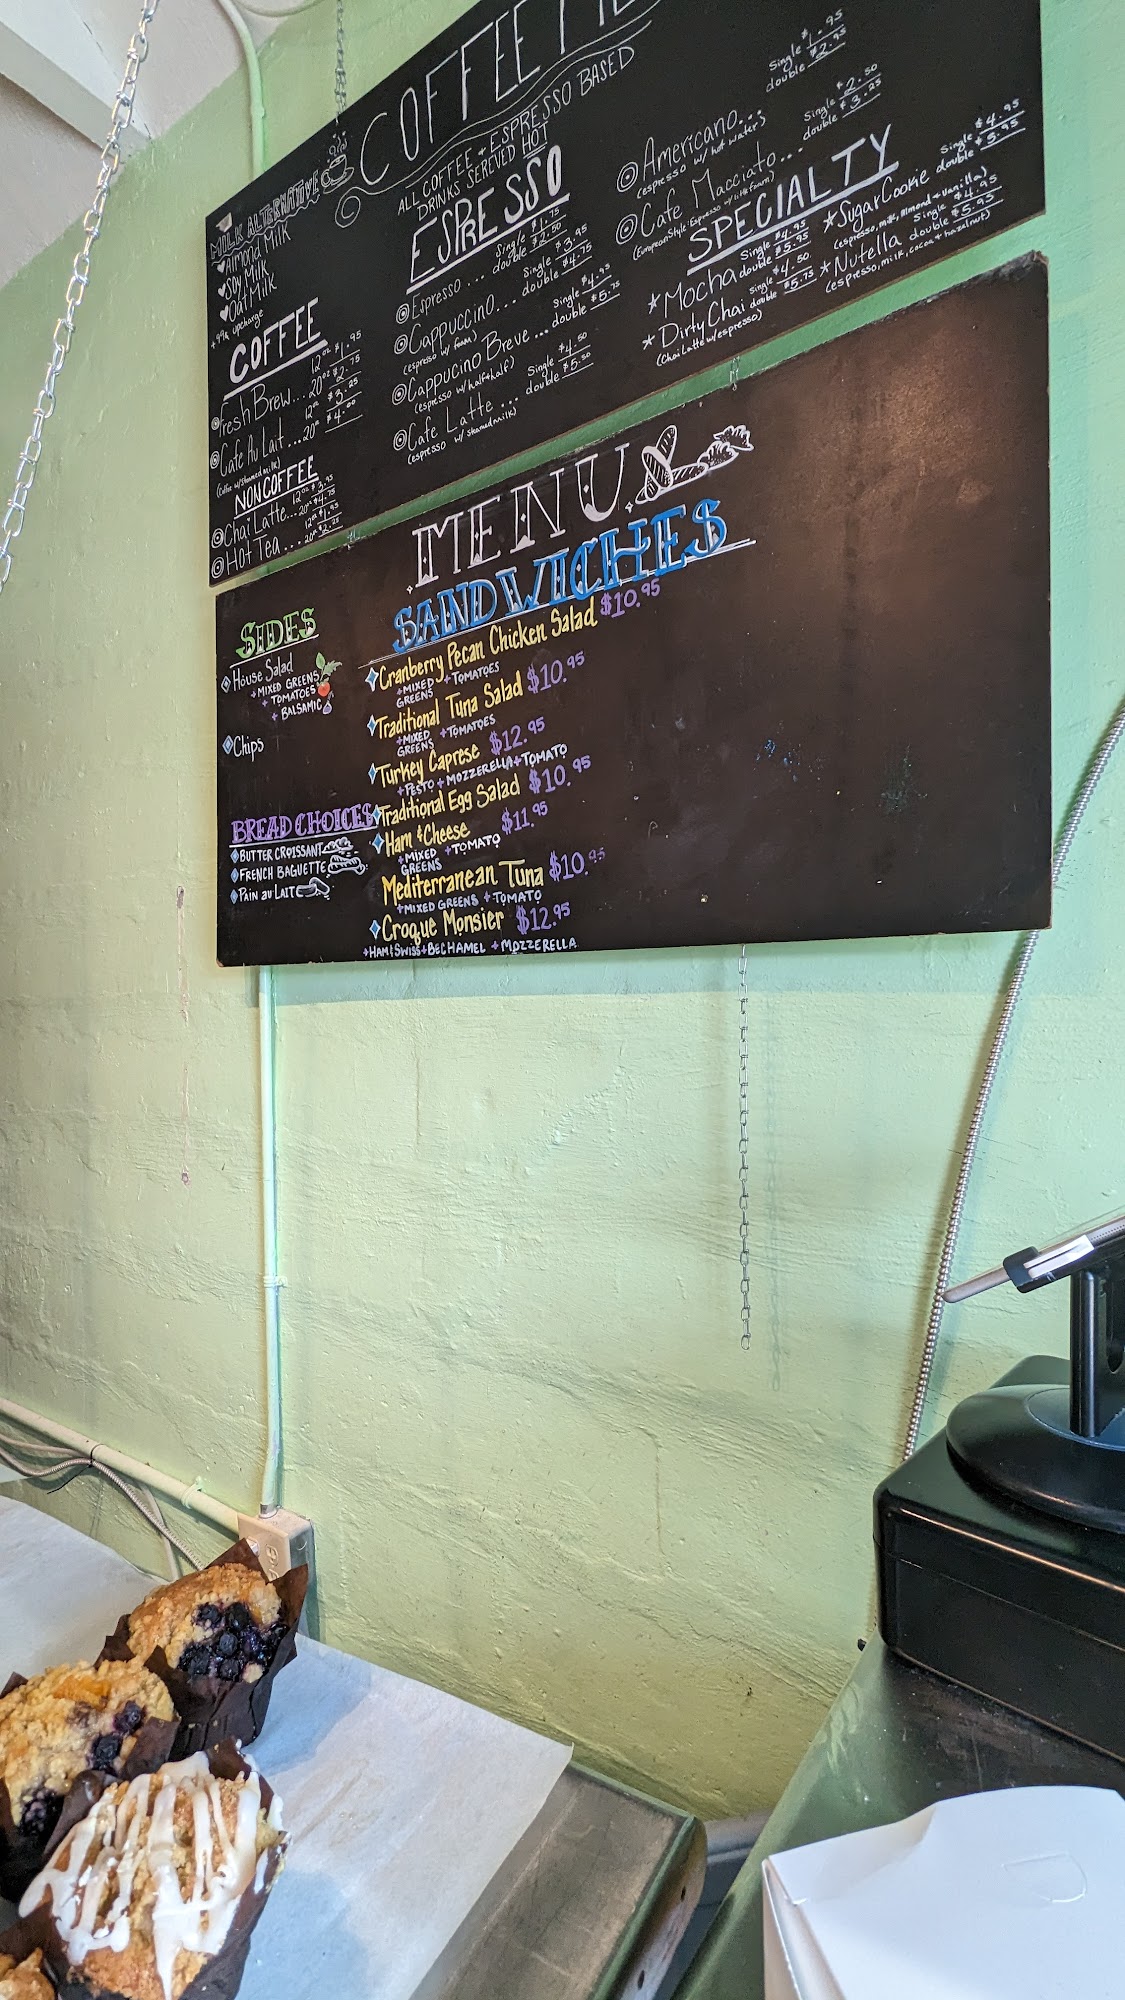 COFFEE
ALL COFFEE + ESPRESSO BASED
DRINKS SEREVED HOT
MILK ALTERNATIVE
Almond Milk
Soy Milk
Oat Milk
+ .99¢ upcharge
COFFEE
Fresh Brew... 12oz $1.95
20oz $2.75
Cafe Au Lait ... 12oz $3.25
20oz $4.00
(Coffee w/steamed milk)
NON COFFEE
Chai Latte... 12oz $3.95
20oz $4.75
Hot Tea .... 12oz $1.95
20oz $2.25
ESPRESSO
Espresso ... Single $1.75
double $2.50
Cappuccino... Single $3.95
double $4.75
(espresso w/ foam)
Cappucino Breve ... Single $4.95
double $5.75
(espresso w/half+half)
Cafe Latte ... Single $4.50
double $5.50
(espresso w/ steamed milk)
Americano... Single $1.95
double $2.95
(espresso w/ hot water)
Cafe Macciato... Single $2.50
double $3.25
(European Style: Espresso w/ little foam)
SPECIALTY
Mocha Single $4.95
double $5.95
Dirty Chai Single $4.50
double $5.75
(Chai Latte w/espresso)
Sugar Cookie Single $4.95
double $5.95
(espresso, milk, Almond + Vanilla)
Nutella Single $4.95
double $5.95
(espresso, milk, cocoa + hazelnut)
MENU
SIDES
House Salad
+ MIXED GREENS
+ TOMATOES
+ BALSAMIC
Chips
BREAD CHOICES
BUTTER CROISSANT
FRENCH BAGUETTE
PAIN AU LAIT
SANDWICHES
Cranberry Pecan Chicken Salad $10.95
+MIXED GREENS +TOMATOES
Traditional Tuna Salad $10.95
+MIXED GREENS +TOMATOES
Turkey Caprese $12.95
+ PESTO + MOZZERELLA + TOMATO
Traditional Egg Salad $10.95
Ham & Cheese $11.95
+MIXED GREENS +TOMATO
Mediterranean Tuna $10.95
+MIXED GREENS + TOMATO
Croque Monsier $12.95
+HAM & SWISS + BECHAMEL + MOZZERELLA